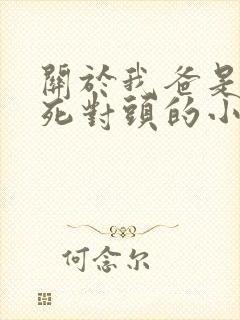 關於我爸是
死對頭的小
何念尔